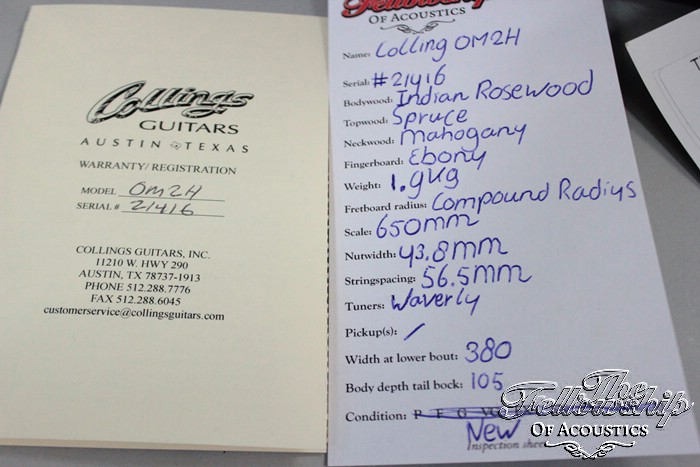 Collings
GUITARS
AUSTIN TEXAS
WARRANTY/ REGISTRATION
MODEL OM2H
SERIAL # 21416
COLLINGS GUITARS, INC.
11210 W. HWY 290
AUSTIN, TX 78737-1913
PHONE 512.288.7776
FAX 512.288.6045
customerservice@collingsguitars.com
Fellowship
OF ACOUSTICS
Name: Colling OM2H
Serial: #21416
Bodywood: Indian Rosewood
Topwood: Spruce
Neckwood: Mahogany
Fingerboard: Ebony
Weight: 1.9kg
Fretboard radius: Compound Radius
Scale: 650mm
Nutwidth: 43.8mm
Stringspacing: 56.5mm
Tuners: Waverly
Pickup(s): /
Width at lower bout: 380
Body depth tail bock: 105
Condition: P F G
New
Inspection sheet
T
The
Fellowship
OF ACOUSTICS